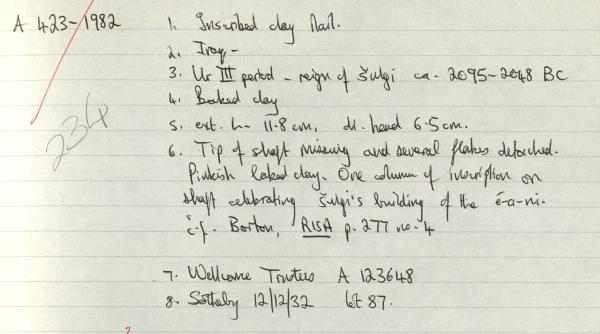 A 423-1982
1. Inscribed clay Nail.
2. Iraq -
3. Ur III period - reign of Šulgi ca. 2095-2048 BC
4. Baked clay
5. ext. h- 11.8 cm, di. head 6.5 cm.
6. Tip of shaft missing and several flakes detached.
Pinkish baked clay. One column of inscription on
shaft celebrating Šulgi's building of the é-a-ni.
c.f. Barton, RISA p. 277 no. 4
7. Wellcome Trustees A 123648
8. Sotheby 12/12/32 lot 87.
234